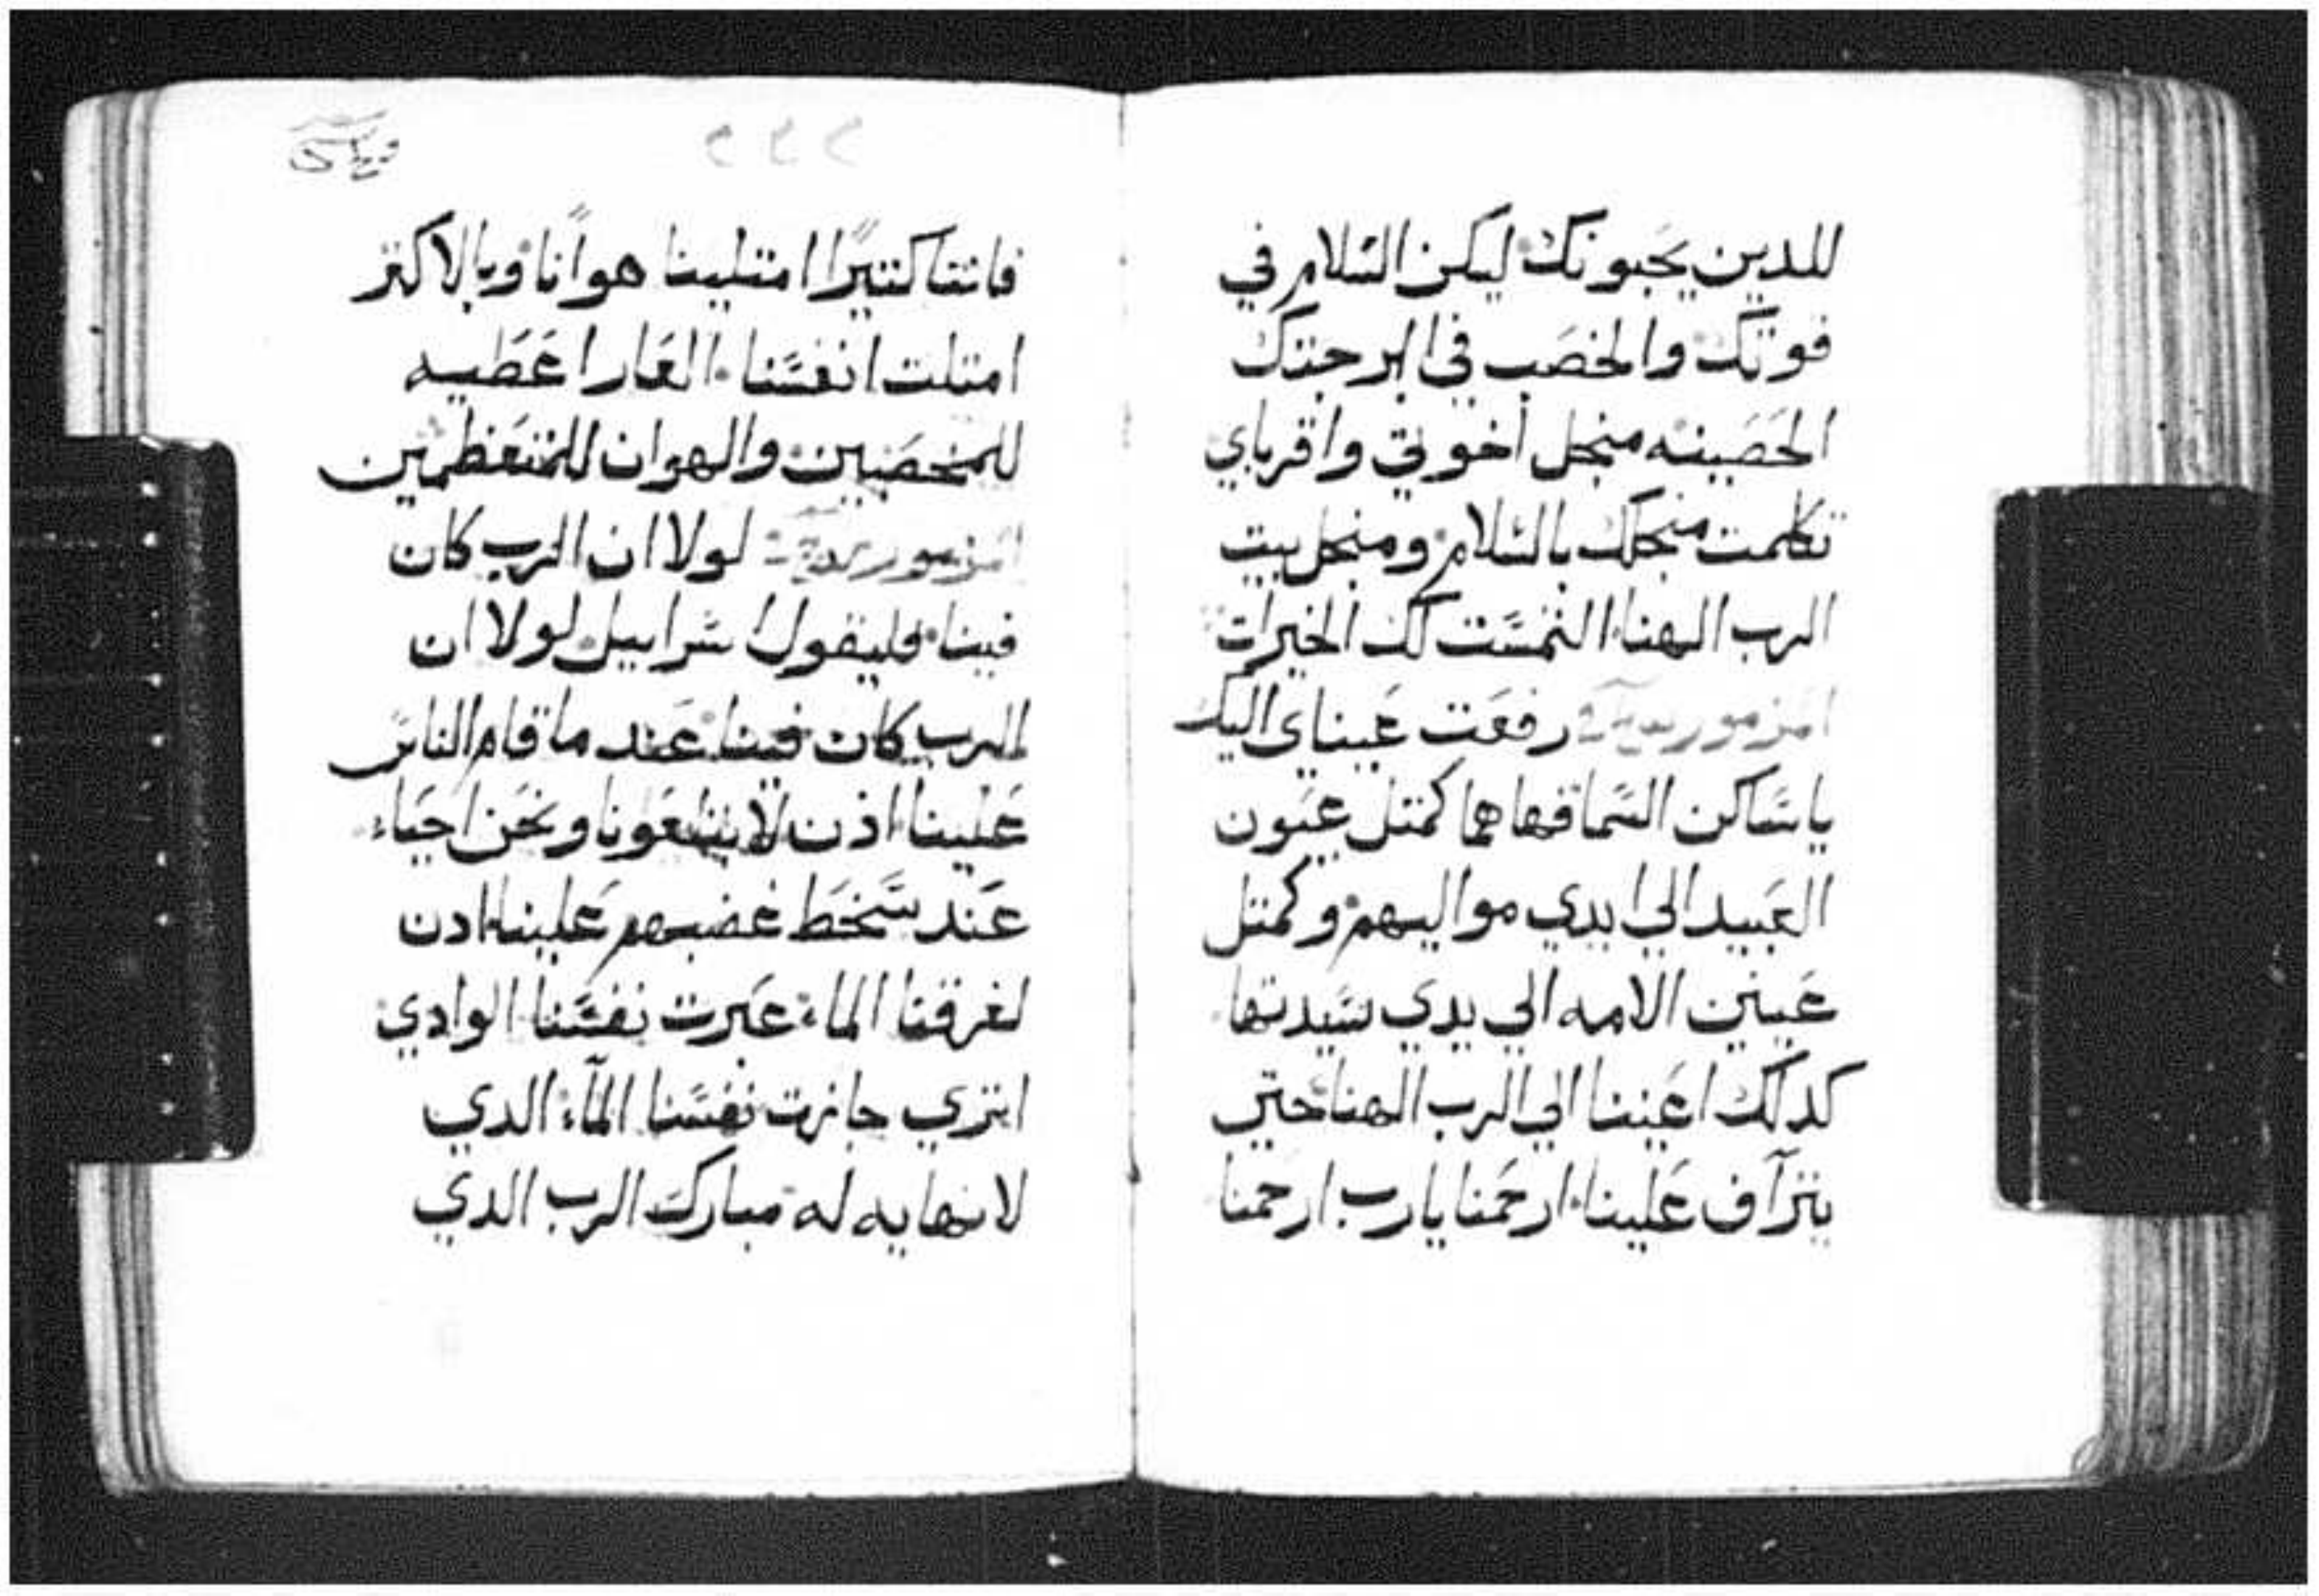 للدين يحبونك ليكن السلام في
قوتك والخصب في ابرجتك
الحصينه منجل اخوتي واقرباي
تكلمت منجلك بالسلام ومنجل بيت
الرب الهنا التمست لك الخيرات
المزمور رفعت عيناي اليك
ياساكن السما فهاهما كمتل عيون
العبيد الي ايدي مواليهم وكمتل
عينين الامه الي يدي سيدتها
كدلك اعيننا الي الرب الهنا حتي
يترآف علينا ارحمنا يارب ارحمنا
٢٢٢
فاننا كتيرًا امتلينا هوانًا وبالاكتر
امتلت انفسنا العار اعطيه
للمخصبين والهوان للمتعظمين
المزمور لولا ان الرب كان
فينا فليقول اسراييل لولا ان
الرب كان فينا عند ما قام الناس
علينا اذن لابتلعونا ونحن احياء
عند سخط غضبهم علينا ادن
لغرقنا الماء عبرت نفسنا الوادي
اتري جازت نفسنا المآء الدي
لانهايه له مبارك الرب الدي